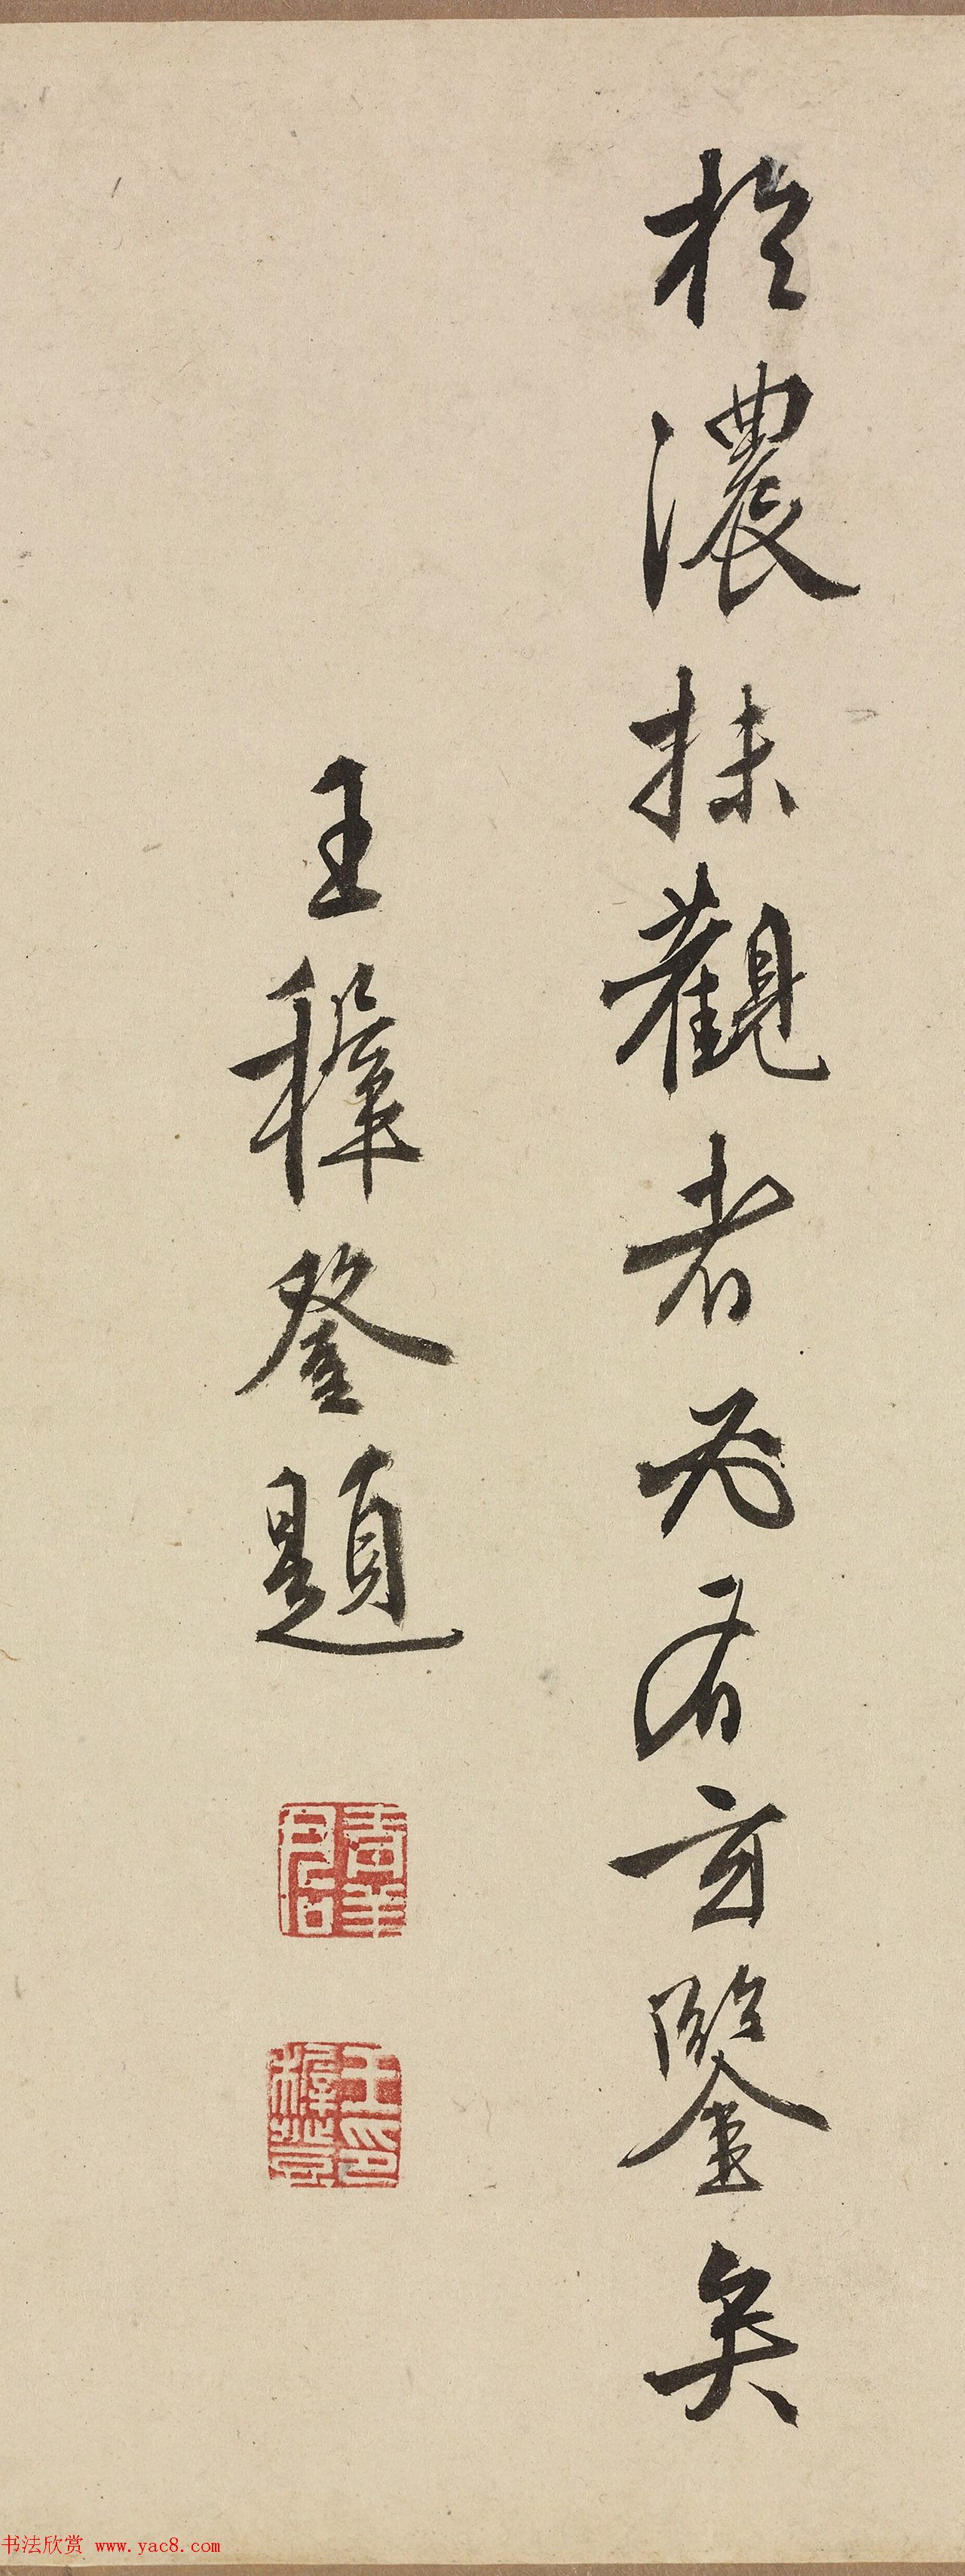 於濃抹觀者必有玄鑒矣
王穉登題
青羊君
王穉登印
书法欣赏 www.yac8.com